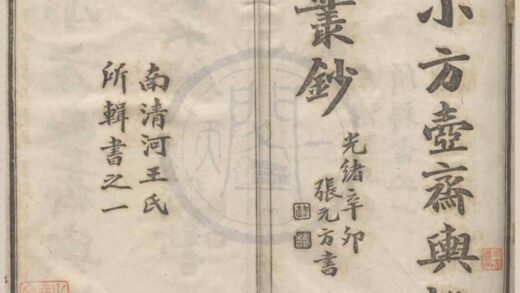 小方壺齋輿
叢鈔
光緒辛卯
張元方書
南清河王氏
所輯書之一